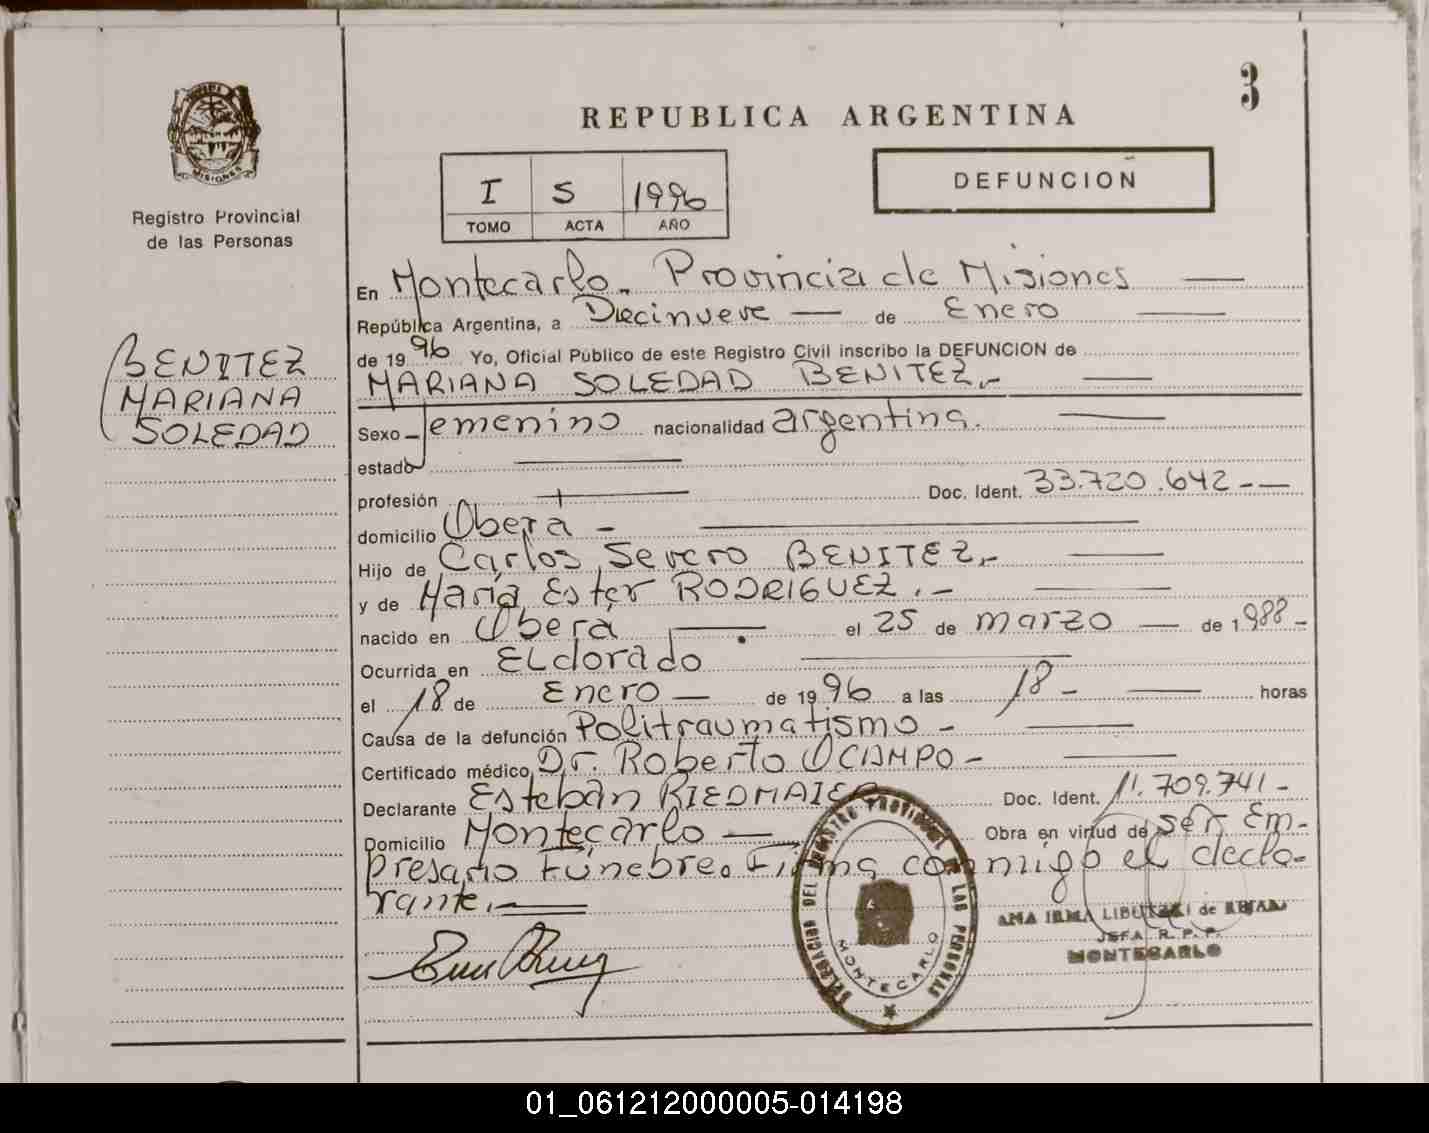 3
REPUBLICA ARGENTINA
MISIONES
Registro Provincial
de las Personas
I 5 1996
TOMO ACTA AÑO
DEFUNCION
BENITEZ
MARIANA
SOLEDAD
En Montecarlo. Provincia de Misiones
República Argentina, a Diecinueve de Enero
de 1996 Yo, Oficial Público de este Registro Civil inscribo la DEFUNCION de
MARIANA SOLEDAD BENITEZ.-
Sexo femenino nacionalidad argentina.
estado
profesión Doc. Ident. 33.720.642--
domicilio Oberá -
Hijo de Carlos Severo BENITEZ.-
y de María Ester RODRIGUEZ.-
nacido en Oberá el 25 de marzo de 1988-
Ocurrida en ELdorado
el 18 de Enero de 1996 a las 18- horas
Causa de la defunción Politraumatismo -
Certificado médico Dr. Roberto OCAMPO -
Declarante Esteban RIEDMAIER Doc. Ident. 11.709.741-
Domicilio Montecarlo Obra en virtud de ser Em-
presario Fúnebre. Firma conmigo el decla-
rante.
DELEGACION DEL REGISTRO PROVINCIAL DE LAS PERSONAS
MONTECARLO
ANA IRMA de
JEFA R. P. P.
MONTECARLO
01_061212000005-014198